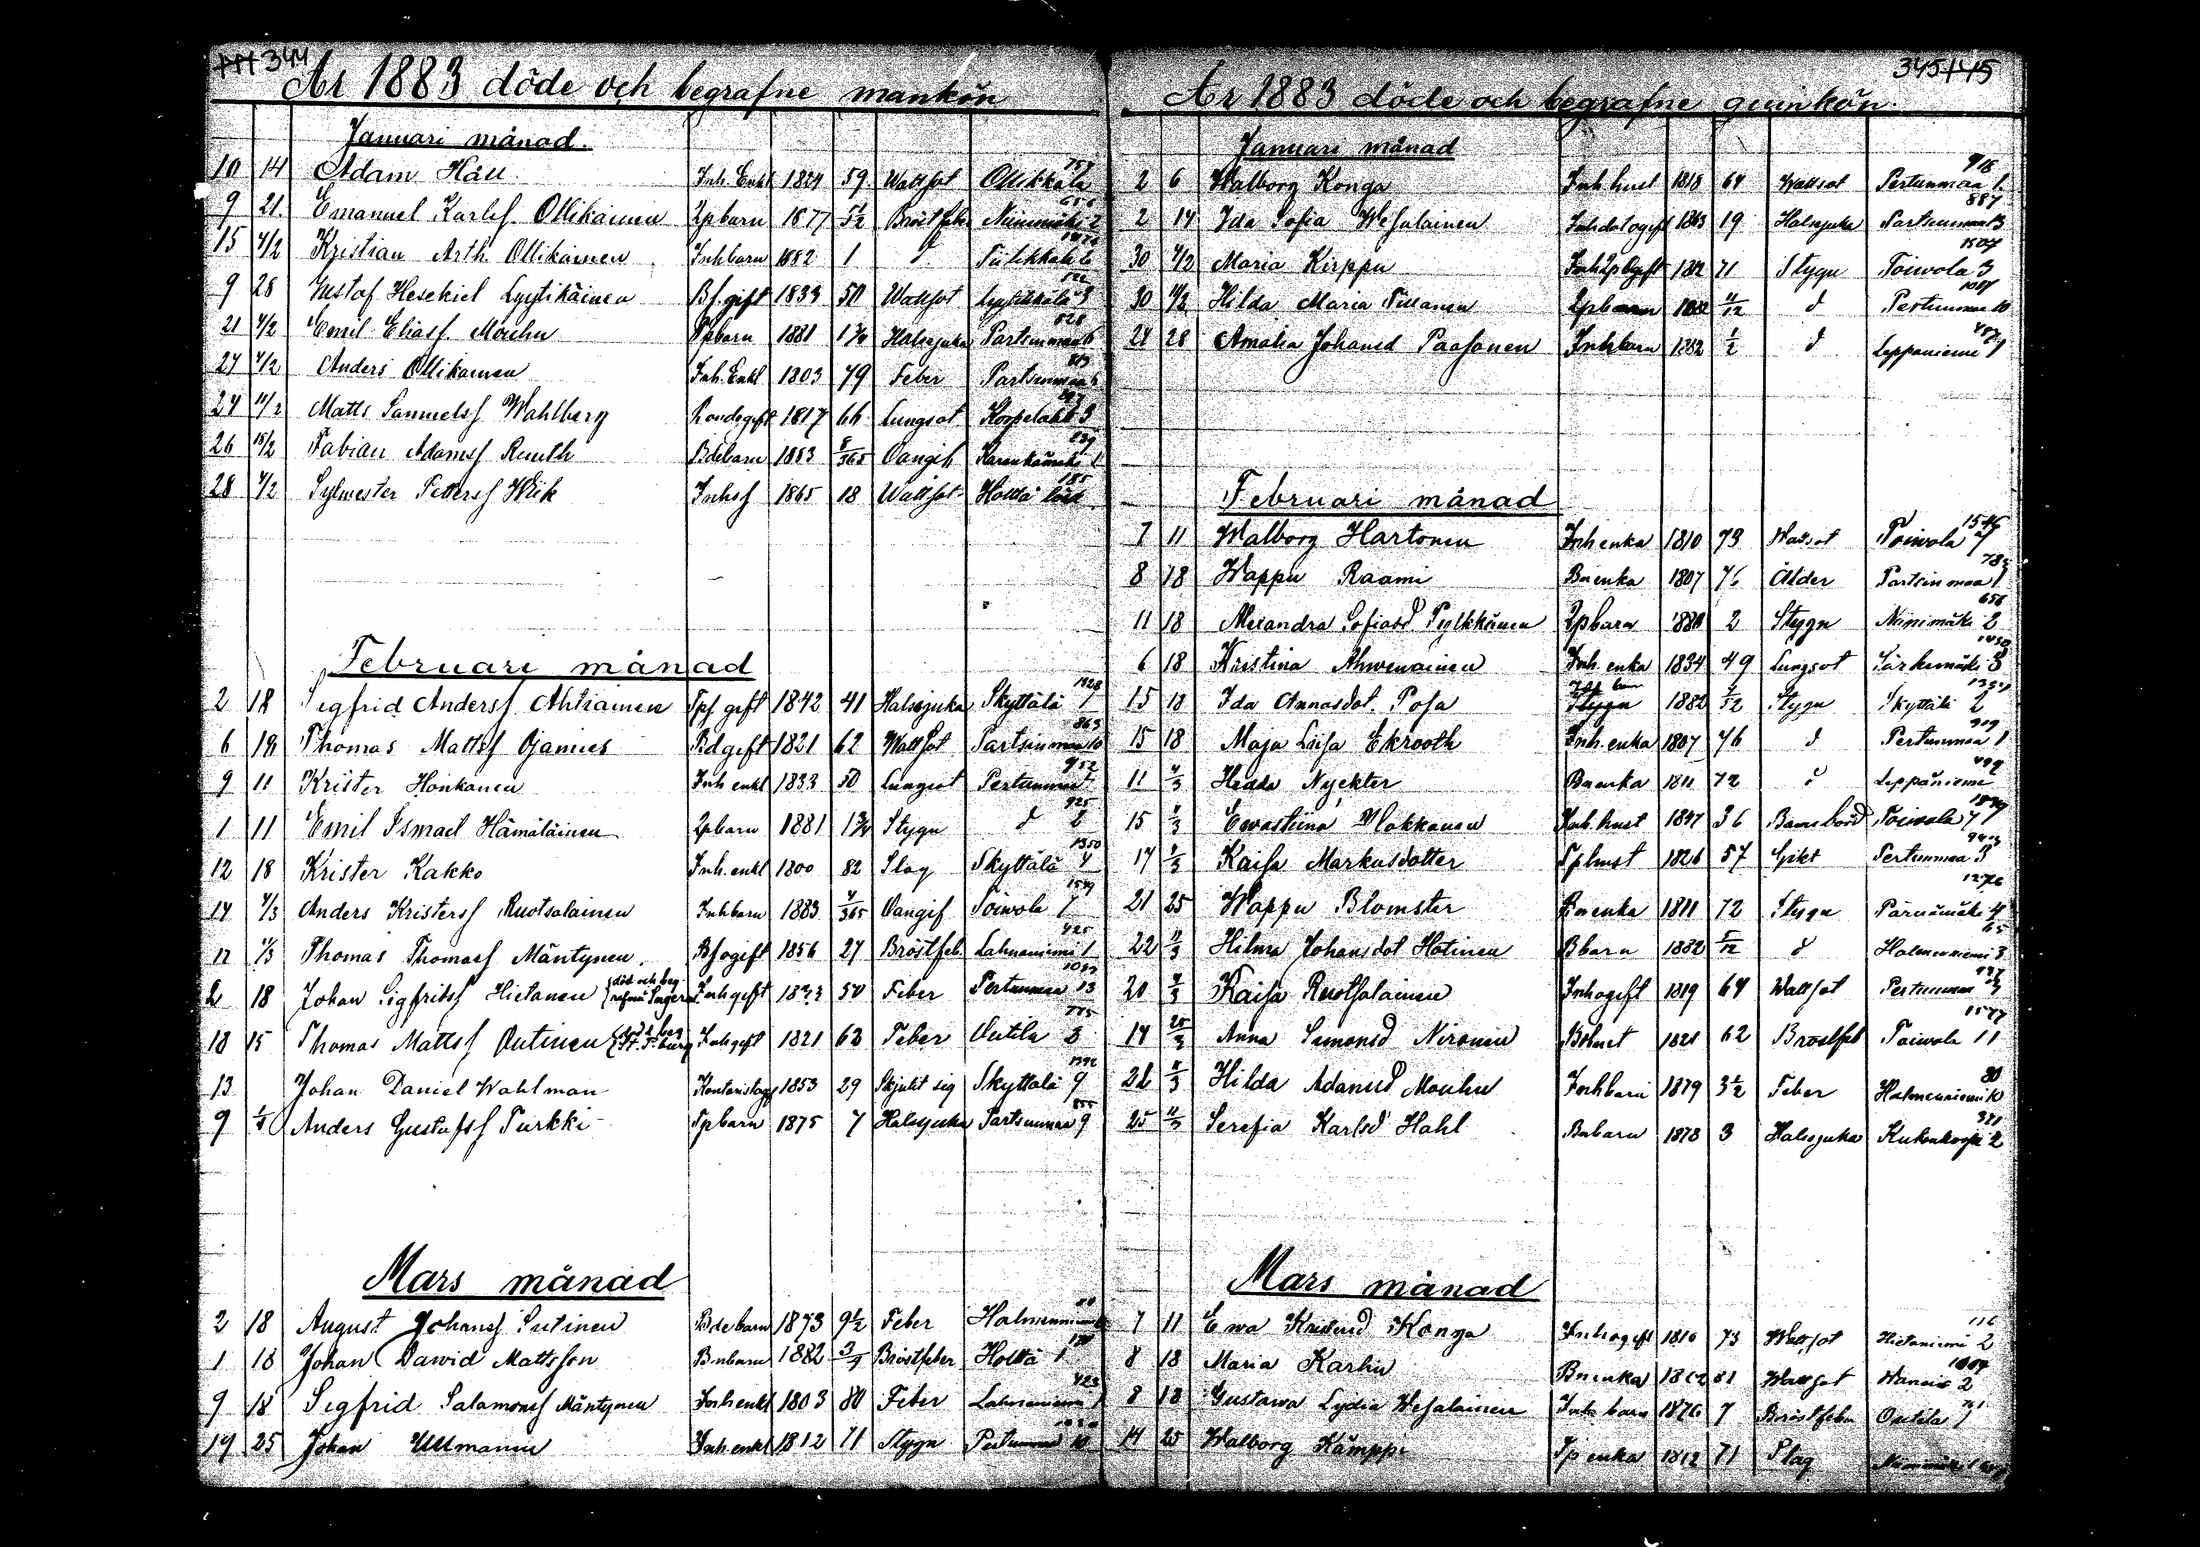 344
År 1883 döde och begrafne mankön
Januari månad.
10 14 Adam Häll Inh. Enkl 1824 59 Wattsot Ollikkala 759
9 21. Emanuel Karlsf. Ollikainen Lpbarn 1877 5½ Bröstfeb. Niinimäki 2
15 4/2 Kristian Arth. Ollikainen Inhbarn 1882 1 d
9 28 Gustaf Hesekiel Lyytikäinen Bf. gift 1833 50 Wattsot Lyytikkälä 3
21 4/2 Emil Eliasf. Mouhu Tpbarn 1881 1¾ Halssjuka Partsinmaa 6
27 4/2 Anders Ollikainen Inh. Enkl 1803 79 Feber Partsinmaa 6
24 11/2 Matts Samuelsf Wahlberg 1817 66 Lungsot Korpelaht 3
26 18/2 Fabian Adamsf Ruuth Bdebarn 1883 8/365 Oangif. 239
28 4/2 Sylwester Pettersf Wiik Inhsf 1865 18 Wattsot Holttå 185
Februari månad
2 18 Sigfrid Andersf Ahtiainen Tpf gift 1842 41 Halssjuka Skyttälä 1 1328
6 18 Thomas Mattsf Ojamies Bdgift 1821 62 Wattsot Partsinmaa 10 863
9 11 Krister Honkanen Inh enkl 1833 50 Lungsot Pertunmaa 952
1 11 Emil Ismael Hämäläinen Lpbarn 1881 1¾ Stygn d 2 925
12 18 Krister Kakko Inh. enkl 1800 82 Slag Skyttälä 4 1350
14 4/3 Anders Kristersf Ruotsalainen Inhbarn 1883 4/365 Oangif Toiwola 7
12 4/3 Thomas Thomasf Mäntynen. Bfogift 1856 27 Bröstfeb. Lahnaniemi 1 425
2 18 Johan Sigfridsf Hietanen Inhgift 50 Feber Pertunmaa 13
18 15 Thomas Mattsf Outinen Inhgift 1821 62 Feber Outila 3 775
13 Johan Daniel Wahlman 1853 29 Skjutit sig Skyttälä 9 1392
9 1/4 Anders Gustafsf Turkki Tpbarn 1875 7 Halssjuka Partsinmaa 9 855
Mars månad
2 18 August Johansf Sutinen Bdebarn 1873 9½ Feber Halmenniemi
1 18 Johan Dawid Mattsson Bnbarn 1882 3/4 Bröstfeber Holttå 1
9 18 Sigfrid Salamonsf Mäntynen Inhenkl 1803 80 Feber Lahnaniemi 423
14 25 Johan Ullmanen Inh. enkl 1812 71 Stygn Pertunmaa 10
345
År 1883 döde och begrafne qvinkön.
Januari månad
2 6 Walborg Konga Inh hust 1818 64 Wattsot Pertunmaa 1. 918
2 14 Ida Sofia Wesalainen 1863 19 Halssjuka Partsinmaa 3 887
30 4/2 Maria Kirppu 71 Stygn Toiwola 3 1504
30 11/2 Hilda Maria Lpbarn d Pertunmaa 10
24 28 Amalia Johansd Paasonen Inhbarn 1882 1/2 d Leppäniemi 1 487
Februari månad
7 11 Walborg Hartonen Inh enka 1810 73 Wattsot Toiwola 7 1546
8 18 Wappu Raami Bnenka 1807 76 Ålder Partsinmaa 1
11 18 Alexandra Sofiasd. Pylkkänen Lpbarn 2 Stygn Niinimäki 2 656
6 18 Kristina Ahwenainen Inh. enka 1834 49 Lungsot Särkemäki 3
15 18 Ida Annasdot. Posa 1882 Stygn Skyttälä 2
15 18 Maja Luisa Ekrooth Inh. enka 1807 76 d Pertunmaa 1 919
11 4/3 Hedda Nyckter Bnenka 1811 72 d Leppäniemi 499
15 4/3 Ewastiina Makkonen Inh. hust 1847 36 Barnsbörd Toiwola 7
17 4/3 Kaisa Markusdotter Tphust 1826 57 Gikt Pertunmaa 3
21 25 Wappu Blomster Bnenka 1811 72 Stygn Pärnämäki 4 1276
22 11/3 Hilma Johansdot Hotinen Bbarn 1882 5/12 d Halmenniemi 3 65
20 4/3 Kaisa Ruotsalainen Inhogift 1819 64 Wattsot Pertunmaa 937
14 25/3 Anna Simonsd Nironen Bnhust 1821 62 Bröstfeb Toiwola 11 1577
28 4/3 Hilda Adamsd Mouhu Inhbarn 1879 3½ Feber Halmenniemi 10 80
25 11/3 Serefia Karlsd Hahl Bnbarn 1878 3 Halssjuka Kukonkorpi 2 321
Mars månad
7 11 Ewa Kristersd Konga Inhogift 1810 73 Wattsot Hietaniemi 2 116
8 18 Maria Karhu Bnenka 81 Wattsot 2
8 18 Gustawa Lydia Wesalainen Inh barn 1876 7 Bröstfeber Outila 1
14 25 Walborg Kämppi Tp enka 1812 71 Slag